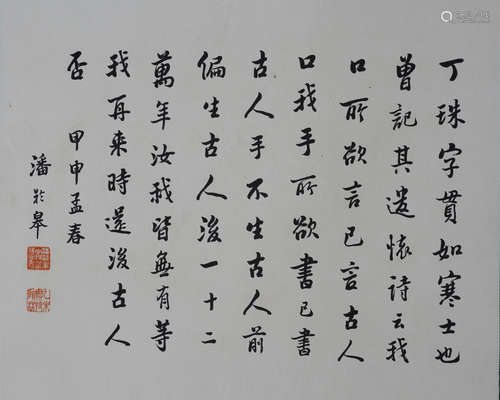 丁珠字貫如寒士也
曾記其遣懷詩云我
口所欲言已言古人
口我手所欲書已書
古人手不生古人前
偏生古人後一十二
萬年汝我皆無有等
我再来時還後古人
否
甲申孟春
潘齡皋